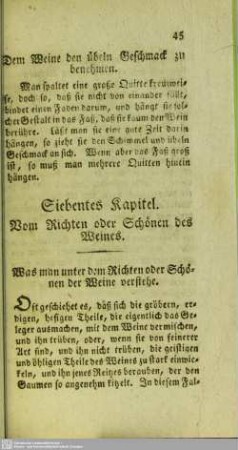 45
Dem Weine den übeln Geschmack zu
benehmen.
Man spaltet eine große Quitte kreuzwei-
se, doch so, daß sie nicht von einander fällt,
bindet einen Faden darum, und hängt sie sol-
cher Gestalt in das Faß, daß sie kaum den Wein
berühre. Läßt man sie eine gute Zeit darin
hängen, so zieht sie den Schimmel und übeln
Geschmack an sich. Wenn aber das Faß groß
ist, so muß man mehrere Quitten hinein
hängen.
Siebentes Kapitel.
Vom Richten oder Schönen des
Weines.
Was man unter dem Richten oder Schö-
nen der Weine verstehe.
Oft geschiehet es, daß sich die gröbern, er-
digen, hefigen Theile, die eigentlich das Ge-
leger ausmachen, mit dem Weine vermischen,
und ihn trüben, oder, wenn sie von feinerer
Art sind, und ihn nicht trüben, die geistigen
und öhligen Theile des Weines zu stark einwic-
keln, und ihn jenes Reitzes berauben, der den
Gaumen so angenehm kitzelt. In diesem Fal-